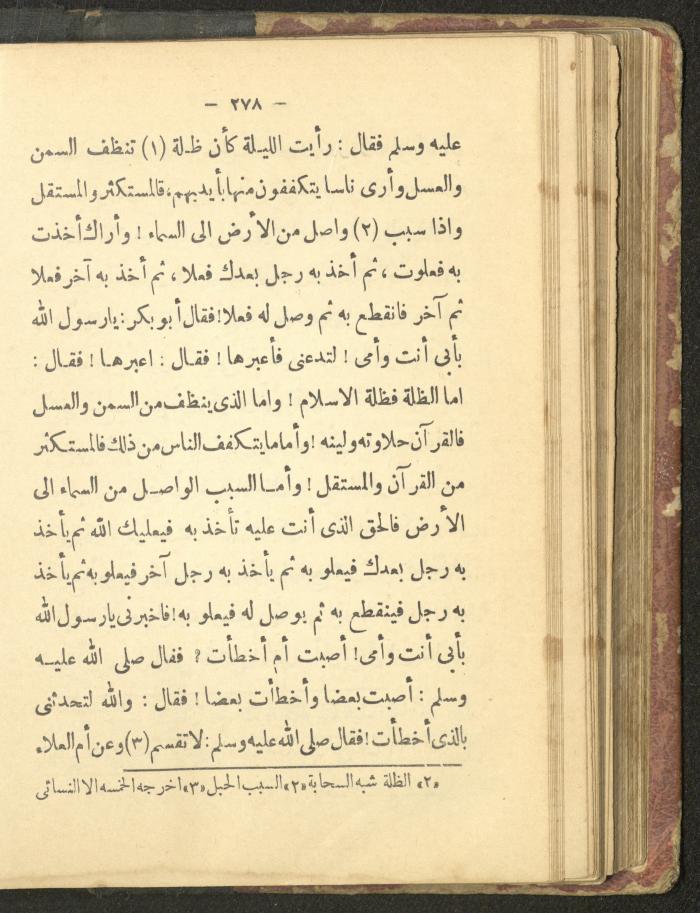 — ٢٧٨ —
عليه وسلم فقال : رأيت الليلة كأن ظلة (١) تنظف السمن
والعسل وأرى ناسا يتكففون منها بأيديهم، فالمستكثر والمستقل
واذا سبب (٢) واصل من الأرض الى السماء ! وأراك أخذت
به فعلوت ، ثم أخذ به رجل بعدك فعلا ، ثم أخذ به آخر فعلا
ثم آخر فانقطع به ثم وصل له فعلا! فقال أبو بكر : يارسول الله
بأبى أنت وأمى ! لتدعنى فأعبرها ! فقال : اعبرها ! فقال :
اما الظلة فظلة الاسلام ! واما الذى ينظف من السمن والعسل
فالقرآن حلاوته ولينه ! وأما ما يتكفف الناس من ذلك فالمستكثر
من القرآن والمستقل ! وأما السبب الواصل من السماء الى
الأرض فالحق الذى أنت عليه تأخذ به فيعليك الله ثم يأخذ
به رجل بعدك فيعلو به ثم يأخذ به رجل آخر فيعلو به ثم يأخذ
به رجل فينقطع به ثم يوصل له فيعلو به! فاخبرنى يارسول الله
بأبى أنت وأمى ! أصبت أم أخطأت ? فقال صلى الله عليه
وسلم : أصبت بعضا وأخطأت بعضا ! فقال : والله لتحدثنى
بالذى أخطأت ! فقال صلى الله عليه وسلم : لا تقسم (٣) وعن أم العلاء
«٢» الظلة شبه السحابة «٢» السبب الحبل «٣» اخرجه الخمسه الا النسائى